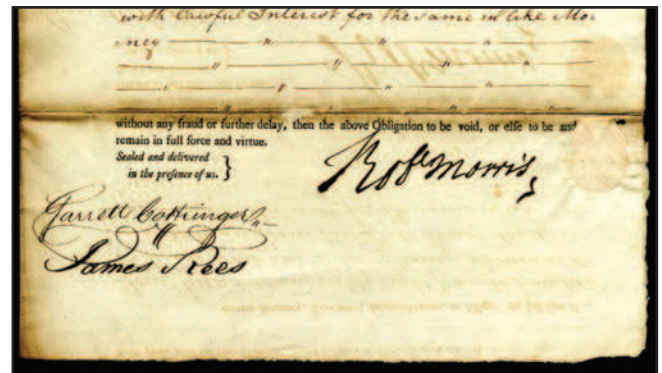 with Lawful Interest for the same in like Mo
ney
without any fraud or further delay, then the above Obligation to be void, or else to be and
remain in full force and virtue.
Sealed and delivered
in the presence of us. }
Robt Morris
Garrett Cottringer
James Rees